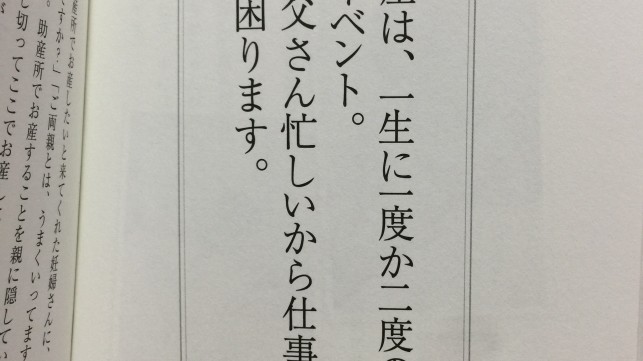 産は、一生に一度か二度の
ベント。
父さん忙しいから仕事
困ります。
産所でお産したいと来てくれた妊婦さんに、
ですか?」「ご両親とは、うまくいってます
。助産所でお産することを親に隠してい
し切ってここでお産